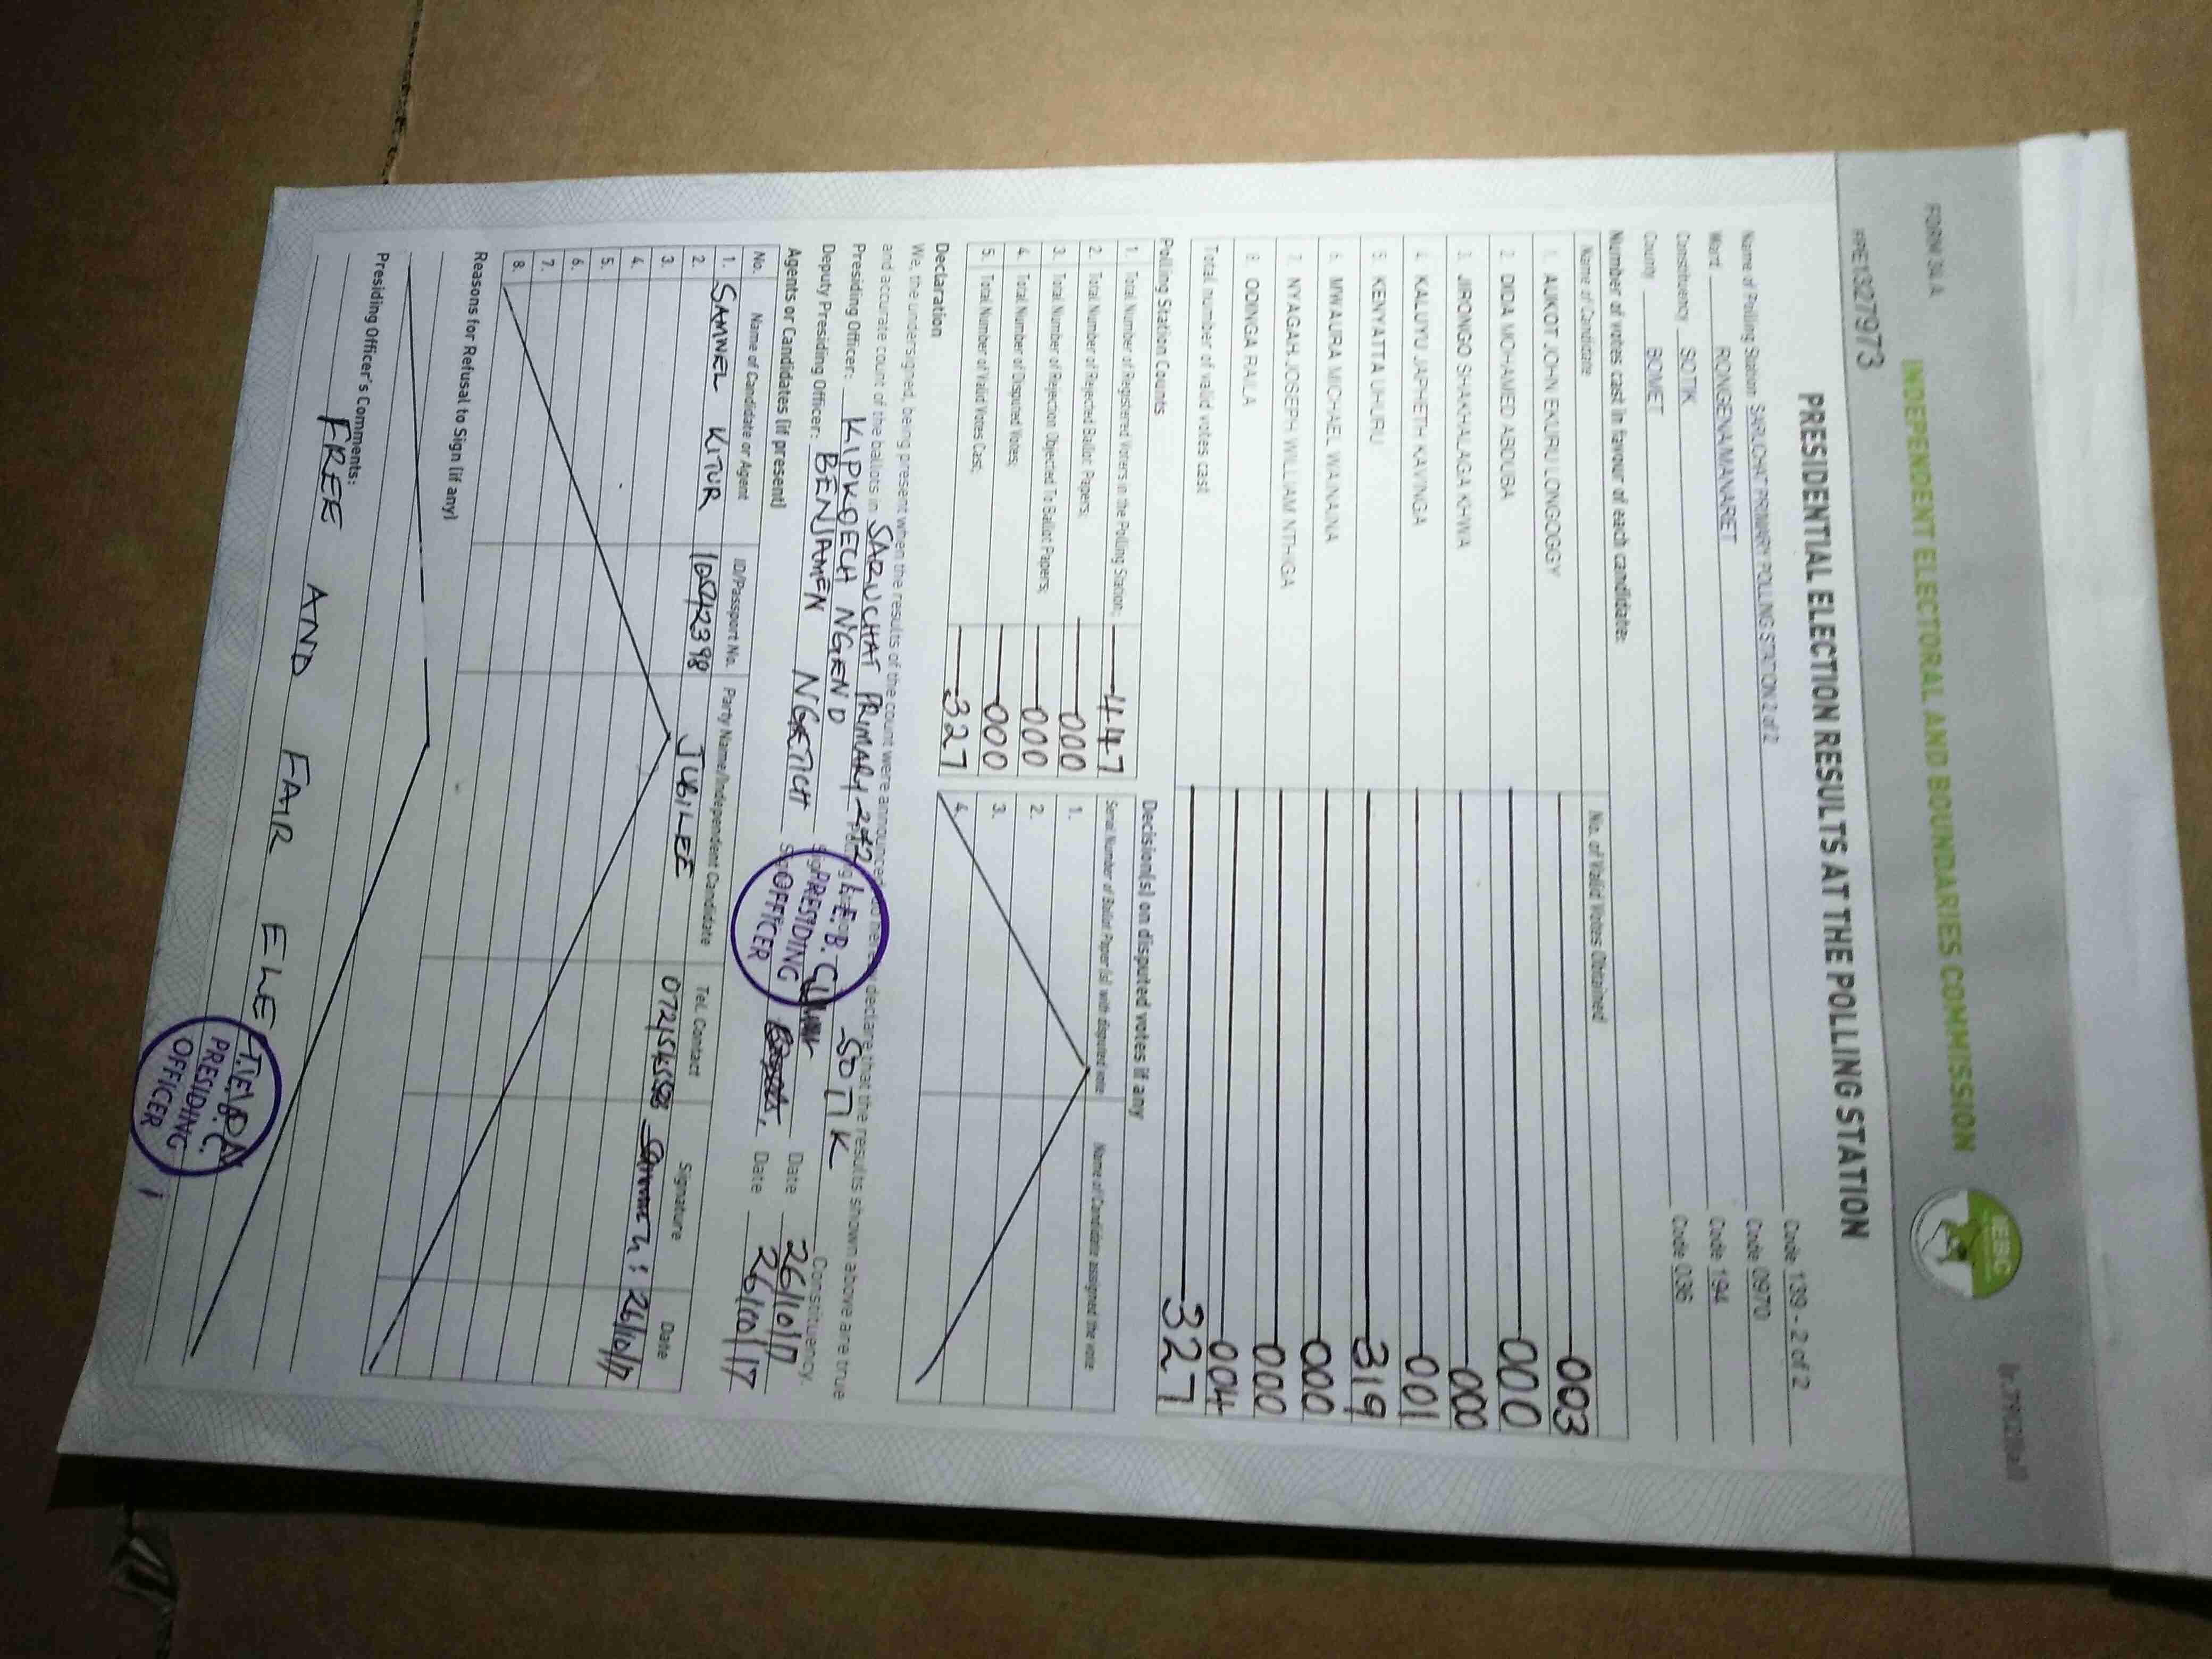 FORM 34 A
INDEPENDENT ELECTORAL AND BOUNDARIES COMMISSION
IEBC
PRE1327973
PRESIDENTIAL ELECTION RESULTS AT THE POLLING STATION
Name of Polling Station SARUCHAT PRIMARY POLLING STATION 2 of 2 Code 139 - 2 of 2
Ward RONGENA/MANARET Code 0970
Constituency SOTIK Code 194
County BOMET Code 036
Number of votes cast in favour of each candidate:
Name of Candidate No. of Valid Votes Obtained
1. AUKOT JOHN EKURU LONGOGGY 003
2. DIDA MOHAMED ABDUBA 000
3. JIRONGO SHAKHALAGA KHWA 000
4. KALUYU JAPHETH KAVINGA 001
5. KENYATTA UHURU 319
6. MWAURA MICHAEL WAINAINA 000
7. NYAGAH JOSEPH WILLIAM NTHIGA 000
8. ODINGA RAILA 004
Total number of valid votes cast 327
Polling Station Counts
1. Total Number of Registered Voters in the Polling Station; 447
2. Total Number of Rejected Ballot Papers; 000
3. Total Number of Rejection Objected To Ballot Papers; 000
4. Total Number of Disputed Votes; 000
5. Total Number of Valid Votes Cast; 327
Decision(s) on disputed votes if any
Serial Number of Ballot Paper(s) with disputed vote Name of Candidate assigned the vote
1.
2.
3.
4.
Declaration
We, the undersigned, being present when the results of the count were announced, do hereby declare that the results shown above are true
and accurate count of the ballots in SARUCHAT PRIMARY 2 of 2 SOTIK Constituency.
Presiding Officer: KIPKOECH NGENO Date 26/10/17
Deputy Presiding Officer: BENJAMEN NGETICH Date 26/10/17
I.E.B.C
PRESIDING
OFFICER
Agents or Candidates (if present)
No. Name of Candidate or Agent ID/Passport No. Party Name/Independent Candidate Tel. Contact Signature Date
1. SAMWEL KITUR 10542398 JUBILEE 26/10/17
2.
3.
4.
5.
6.
7.
8.
Reasons for Refusal to Sign (if any)
Presiding Officer's Comments:
FREE AND FAIR
I.E.B.C.
PRESIDING
OFFICER